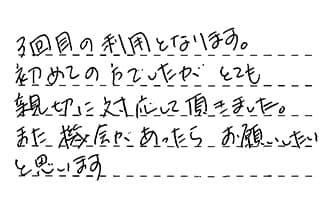 3回目の利用となります。
初めての方でしたが とても
親切に対応して頂きました。
また機会があったら お願いしたい
と思います